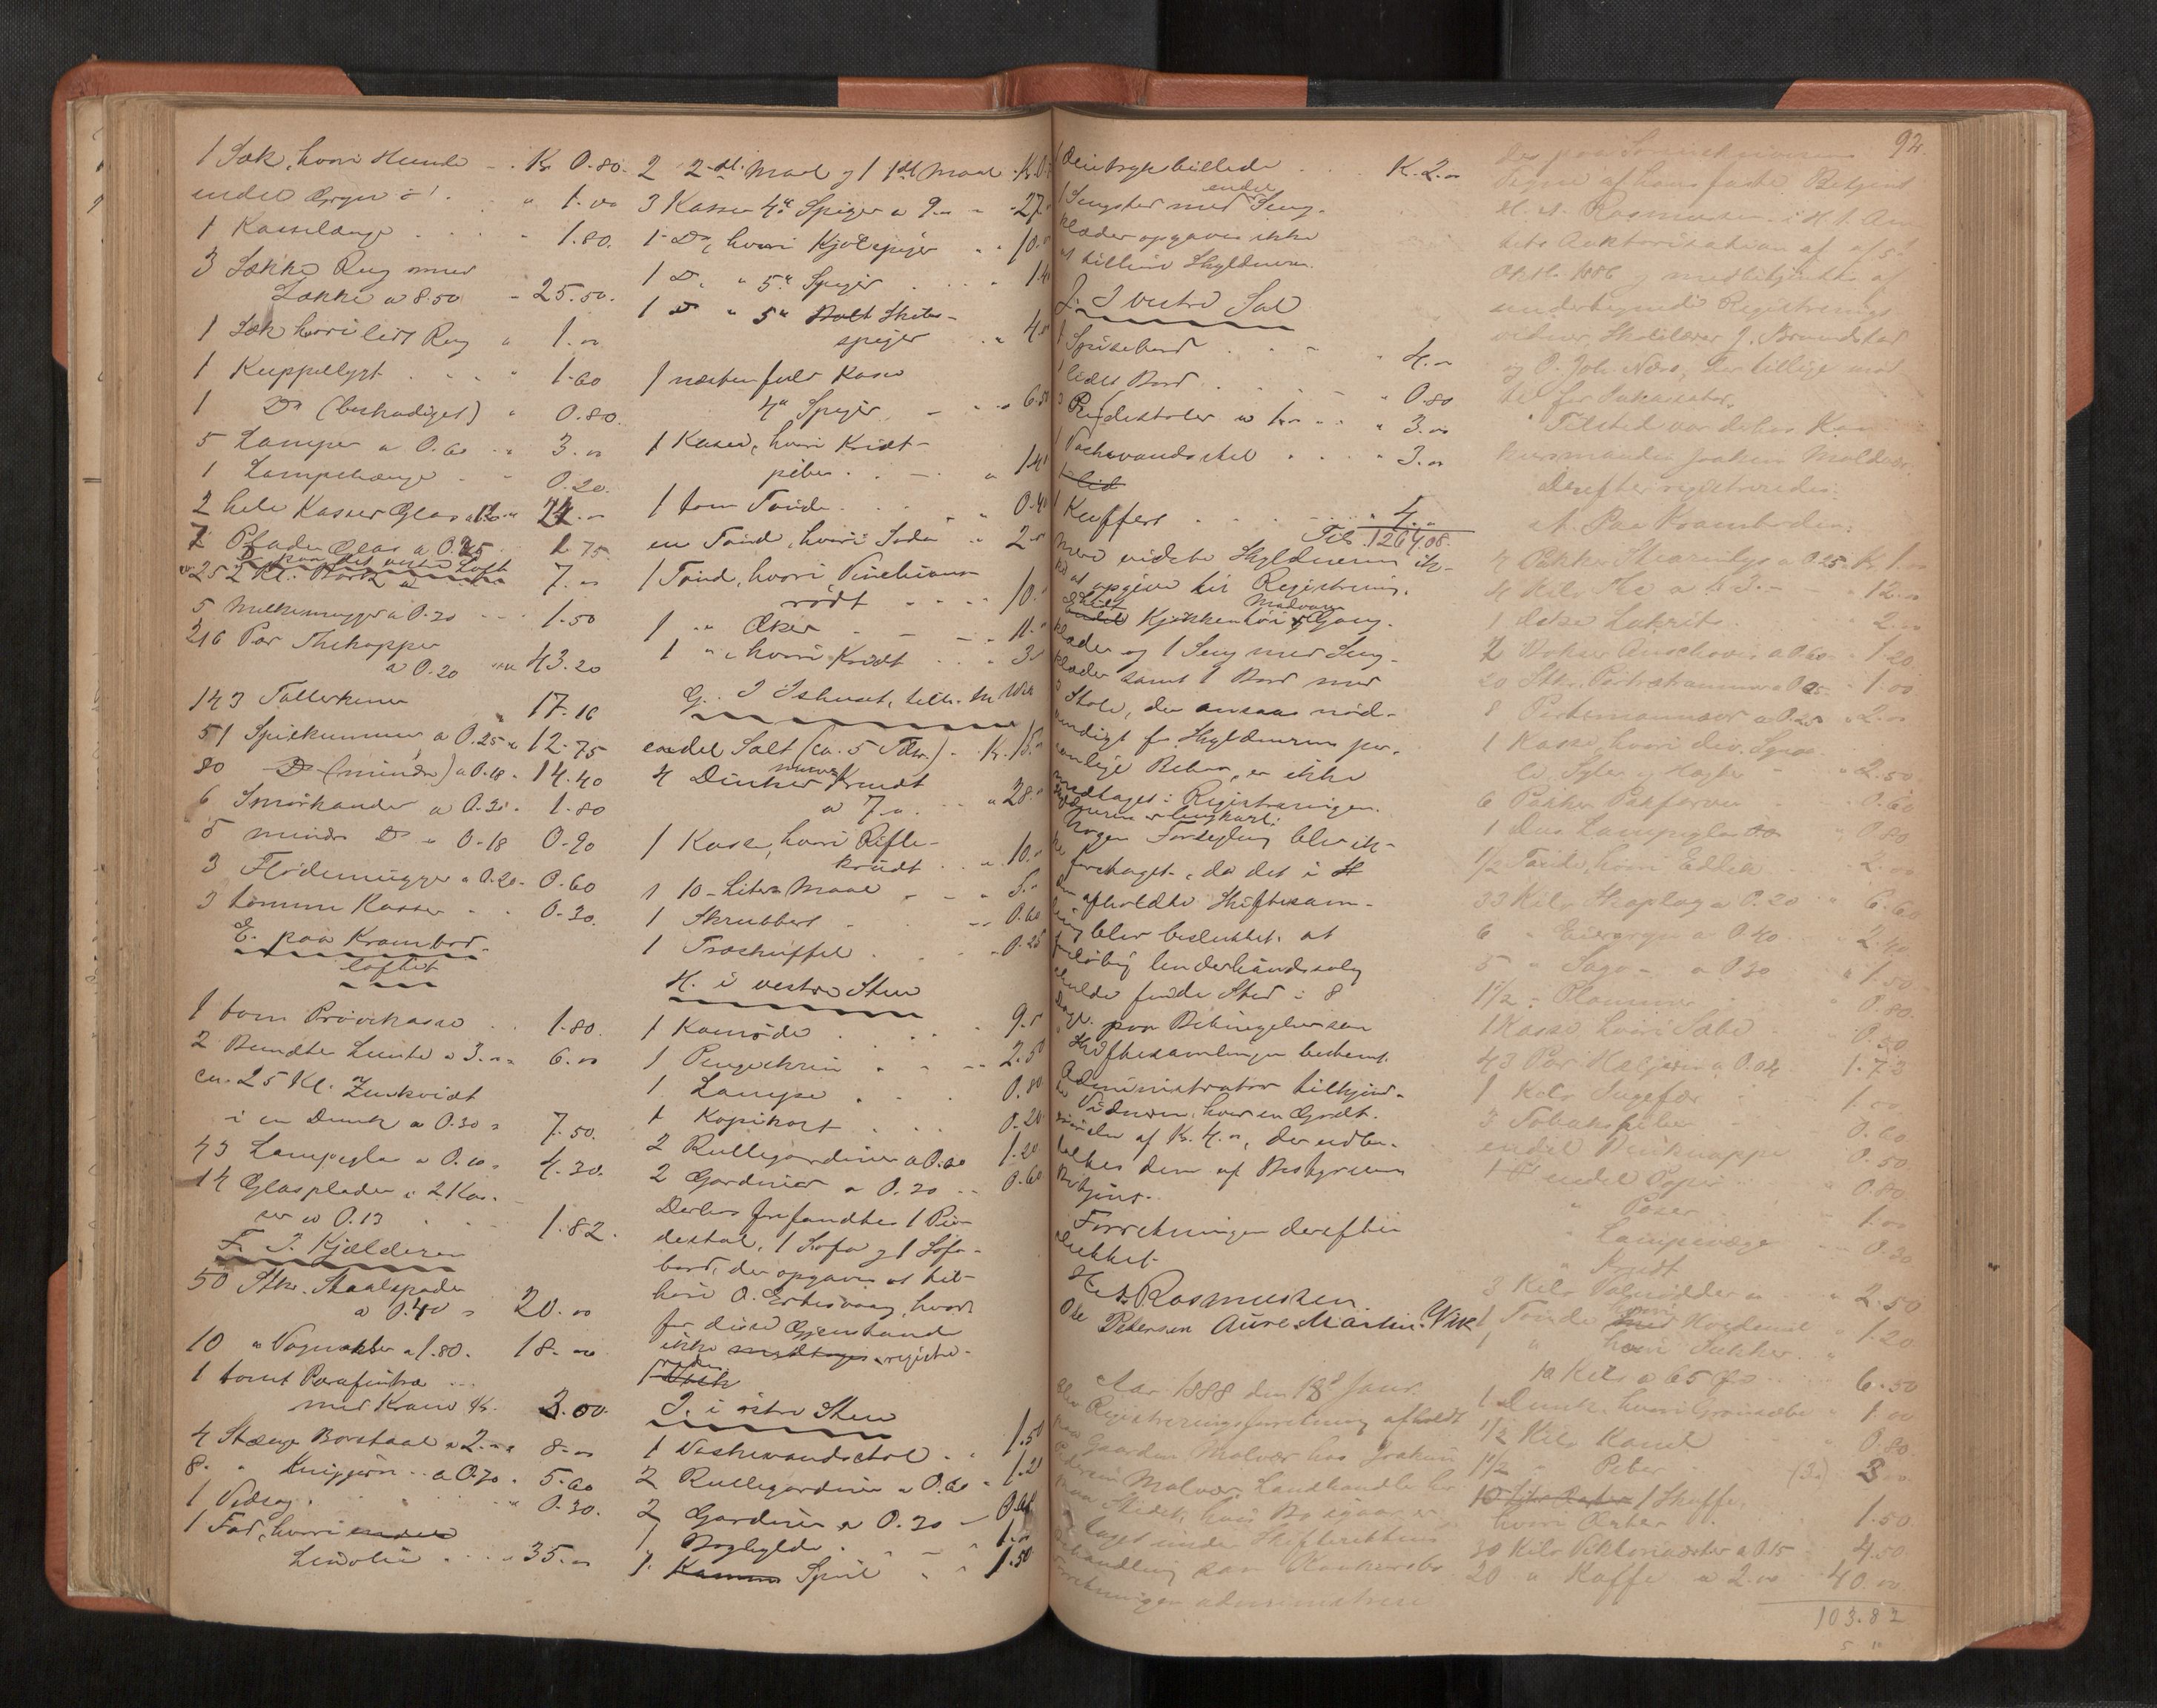 1 Sæk, hvori Humle - . Kr 0.80.
endel Gryn i . . " 1.00
1 Kasselænge . . . . 1.80.
3 Sække Rug med
Sække a 8.50 - 25.50.
1 Sæk hvori lidt Rug " 1.00
1 Kuppellygt . . . " 1.60
1 Do (beskadiget) " 0.80.
5 Lamper a 0.60 . . " 3.00
1 Lampehænge . . 0.20.
2 hele Kasser Glas a 12.00 24.00
7 Plader Glas a 0.25 . 1.75
D. paa det vestre Loft
7.00
5 Melkemugger a 0.30 - - 1.50
216 Par Thekopper
a 0.20 " 43.20
143 Tallerkener " 17.16
51 Spilkummer a 0.25 " 12.75
80 Do (mindre) a 0.18 . 14.40
6 Smørkander a 0.30 . 1.80
5 mindre Do " 0.18 0.90
3 Flødemugger a 0.20 . 0.60
3 tomme Kasser . . 0.30.
E. paa Krambod-
loftet
1 tom Prøvekasse . . 1.80.
2 Bundter Lunte a 3.00 6.00
ca. 25 Kl. Zinkhvidt
i en Dunk a 0.30 " 7.50.
43 Lampeglas a 0.10 " 4.30.
14 Glasplader i 2 Kas-
ser a 0.13 . . . 1.82.
F. I Kjælderen
50 Stkr. Staalspader
a 0.40 " 20.00
10 " Vognaksler a 1.80. 18.00
1 tomt Parafinfad ...
med Krane Kr. 3.00.
4 Stænger Borstaal a 2.00 8.00
8. " Knipjern .. a 0.70 . 5.60
1 Vedsag . . . . " 0.30.
1 Fad, hvori endel
Linolie . . . . " 35.00
2 2-dl. Maal og 1 1dl Maal . Kr. 0.
3 Kasser 4" Spiger a 9.00 - - 27.
1 Do, hvori Kjølspiger . . 10.00
1 Do " 5" Spiger . . . . 14
1 Do " 5" Bolt Skibs-
spiger . . 4.00
1 næsten fuld Kasse
4" Spiger - . " 6.50
1 Kasse, hvori Kridt-
piber . . - . " 14
1 tom Tønde . . . . " 0.40
en Tønde, hvori Soda " 2.00
1 Tønde, hvori Venetiansk
rødt - - - - 10.
1 " Oker . - - . 11.
1 " , hvori Kridt . . " 3
G. I Ishuset,
endel Salt (ca. 5 Tdr.) . Kr. 15.00
4 Dunker Krudt
a 7.00 . . " 28.
1 Kasse, hvori Rifle-
krudt . . " 10.00
1 10-Liters Maal - - - 5.
1 Skrubbert . . . . 0.60
1 Træskuffel . . . . 0.25
H. i vestre Stue
1 Komode . . . . . 9.
1 Pengeskrin . " - - 2.50
1 Lampe . . . . 0.80
1 Kopikort . . . . 0.20
2 Rullegardiner a 0.60 1.20
2 Gardiner a 0.30 . . 0.60
Derhos forefandtes 1 Pie-
destal, 1 Sofa og 1 Sofa-
bord, der opgaves at til-
høre O. Ertesvaag, hvor-
for disse Gjenstande
ikke medtages registre-
redes.
I. i østre Stue
1 Vaskevandsstol . . 1.50
2 Rullegardiner a 0.60 . 1.20
2 Gardiner a 0.30 - 0.60
1 Boghylde . . - . 1.00
1. Kamme Speil " " 1.50
Oljetrykbillede . . . K. 2.00
1 Sengsted med endel Seng-
klæder opgaves ikke
at tilhøre Skyldneren.
J. I vestre Sal
1 Spisebord . . . - . 4.00
1 lidet Bord . . . . . 0.80
3 Rørstoler a 1.00 . . . " 3.00
1 Vaskevandsstel . . . . " 3.00
1 lid
1 Kuffert . . . . . . 4.00
Tils. 1264.08.
Mere vidste Skyldneren ik-
ke at opgive til Registrering.
Endel Lidt Kjøkkentøi, Madvarer og Gang-
klæder og 1 Seng med Seng-
klæder samt 1 Bord med
3 Stole, der ansaaes nød-
vendigt for Skyldnerens per-
sonlige Behov, er ikke
medtaget i Registreringen.
Skyldneren er ungkarl.
Nogen Forsegling blev ik-
ke foretaget, da det i St
den afholdte Skiftesam-
ling blev besluttet, at
foreløbig Underhaandssalg
skulde finde Sted i 8
Dage paa Betingelser som
Skiftesamlingen bestemt.
Administrator tilkjend-
te Vidnerne hver en Godt-
gjørelse af Kr. 4.00, der udbe-
taltes dem af Bestyreren
Betjent.
Forretningen derefter
sluttet.
H. A. Rasmussen.
Ole Petersen Aure Martin. Vik
Aar 1888 den 18de Januar
blev Registreringsforretning afholdt
paa Gaarden Malvær hos Joakim
Pedersen Malvær, Landhandler her
paa Stedet, hvis Bo igaar er
taget under Skifterettens
Behandling som Konkursbo
Forretningen administreres
92.
Des paa Lensmandens
Vegne af hans faste Betjent
H. A. Rasmussen i H. t. Am-
tets Auktorisation af af 5te
Oktbr. 1886 og medbetjentes af
undertegnede Registrerings-
vidner, Skolelærer J. Brundstad
og O. Joh. Næss, der tillige mød-
te for Taksator.
Tilstede var dehos Kon-
kursmanden Joakim Malvær.
Derefter registreredes:
A. Paa Kramboden:
4 Pakker Stearinlys a 0.25 Kr. 1.00
4 Kilo The a Kr 3.- " 12.00
1 Æske Lakrits . . . 2.00
2 Bokser Anschovis a 0.60 - 1.20
20 Stkr. Portrætrammer a 0.05 . 1.00
8 Portemonnæer a 0.25 " 2.00
1 Kasse, hvori div. Synaa-
le, Syler og Hægter - " 2.50
6 Pakker Pakfarve " 0.60
1 Dus Lampeglas " 0.80
1/2 Tønde, hvori Eddik . 2.00
33 Kilo Skoplug a 0.20 . " 6.60
6 " Eiergryn a 0.40 " 2.40
5 " Sago - a 0.30 " 1.50
1 1/2 - Blommer " 0.80.
1 Kasse hvori Sæbe " 0.50
43 Par Hæljern a 0.04 1.73
1 Kilo Ingefær " 1.00
3 Tobakspiber . 0.60
endel Buxknapper 0.50
1 endel Papir . . " 0.80
" Poser . . 1.00
" Lampevæger . . 0.30
" Krudt
3 Kilo Valnødder a . . " 2.50
1 Tønde hvori Hvedemel " 1.20
1 " hvori Sukker "
10 Kilo a 65 Øre . . . 6.50
1 Dunk, hvori Grønsæbe " 1.00
1/2 Kilo Kanel " 0.80.
1 1/2 " Peber (3) 3.00
1 Skuffe,
hvori Erter . 1.50.
30 Kilo Viktoriaerter a 0.15 4.50
20 " Kaffe a 2.00 . 40.00
103.82